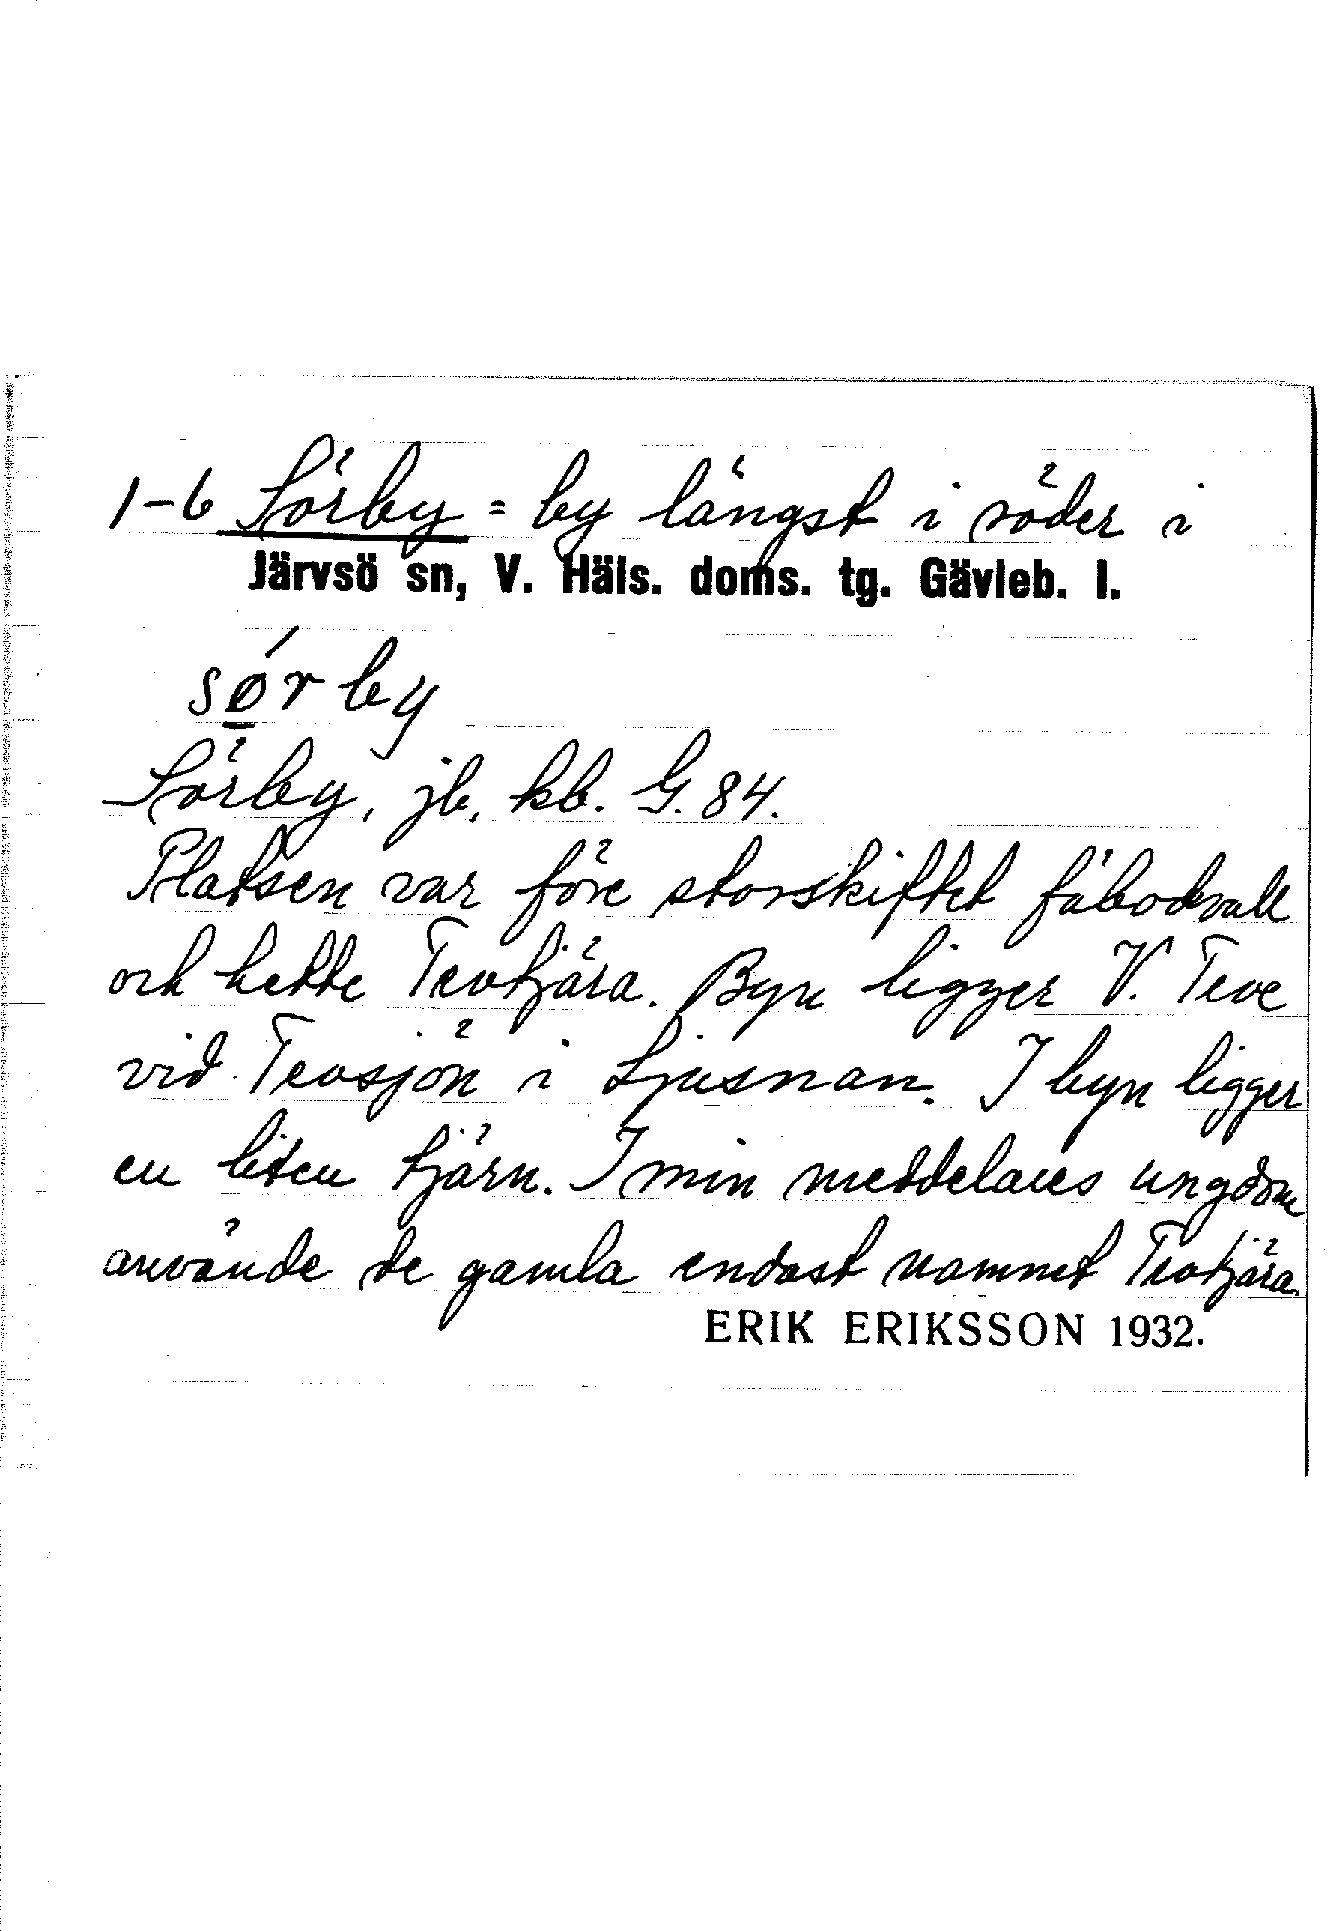 1-6 Sörby = by längst i söder i
Järvsö sn, V. Häls. doms. tg. Gävleb. l.
sǿ̱rby
Sörby, jb, kb. G. 84.
Platsen var före storskiftet fäbodvall
och hette Tevtjära. Byn ligger V. Teve
vid Tevsjön i Ljusnan. I byn ligger
en liten tjärn. I min meddelares ungdom
använde de gamla endast namnet Tevtjära.
ERIK ERIKSSON 1932.